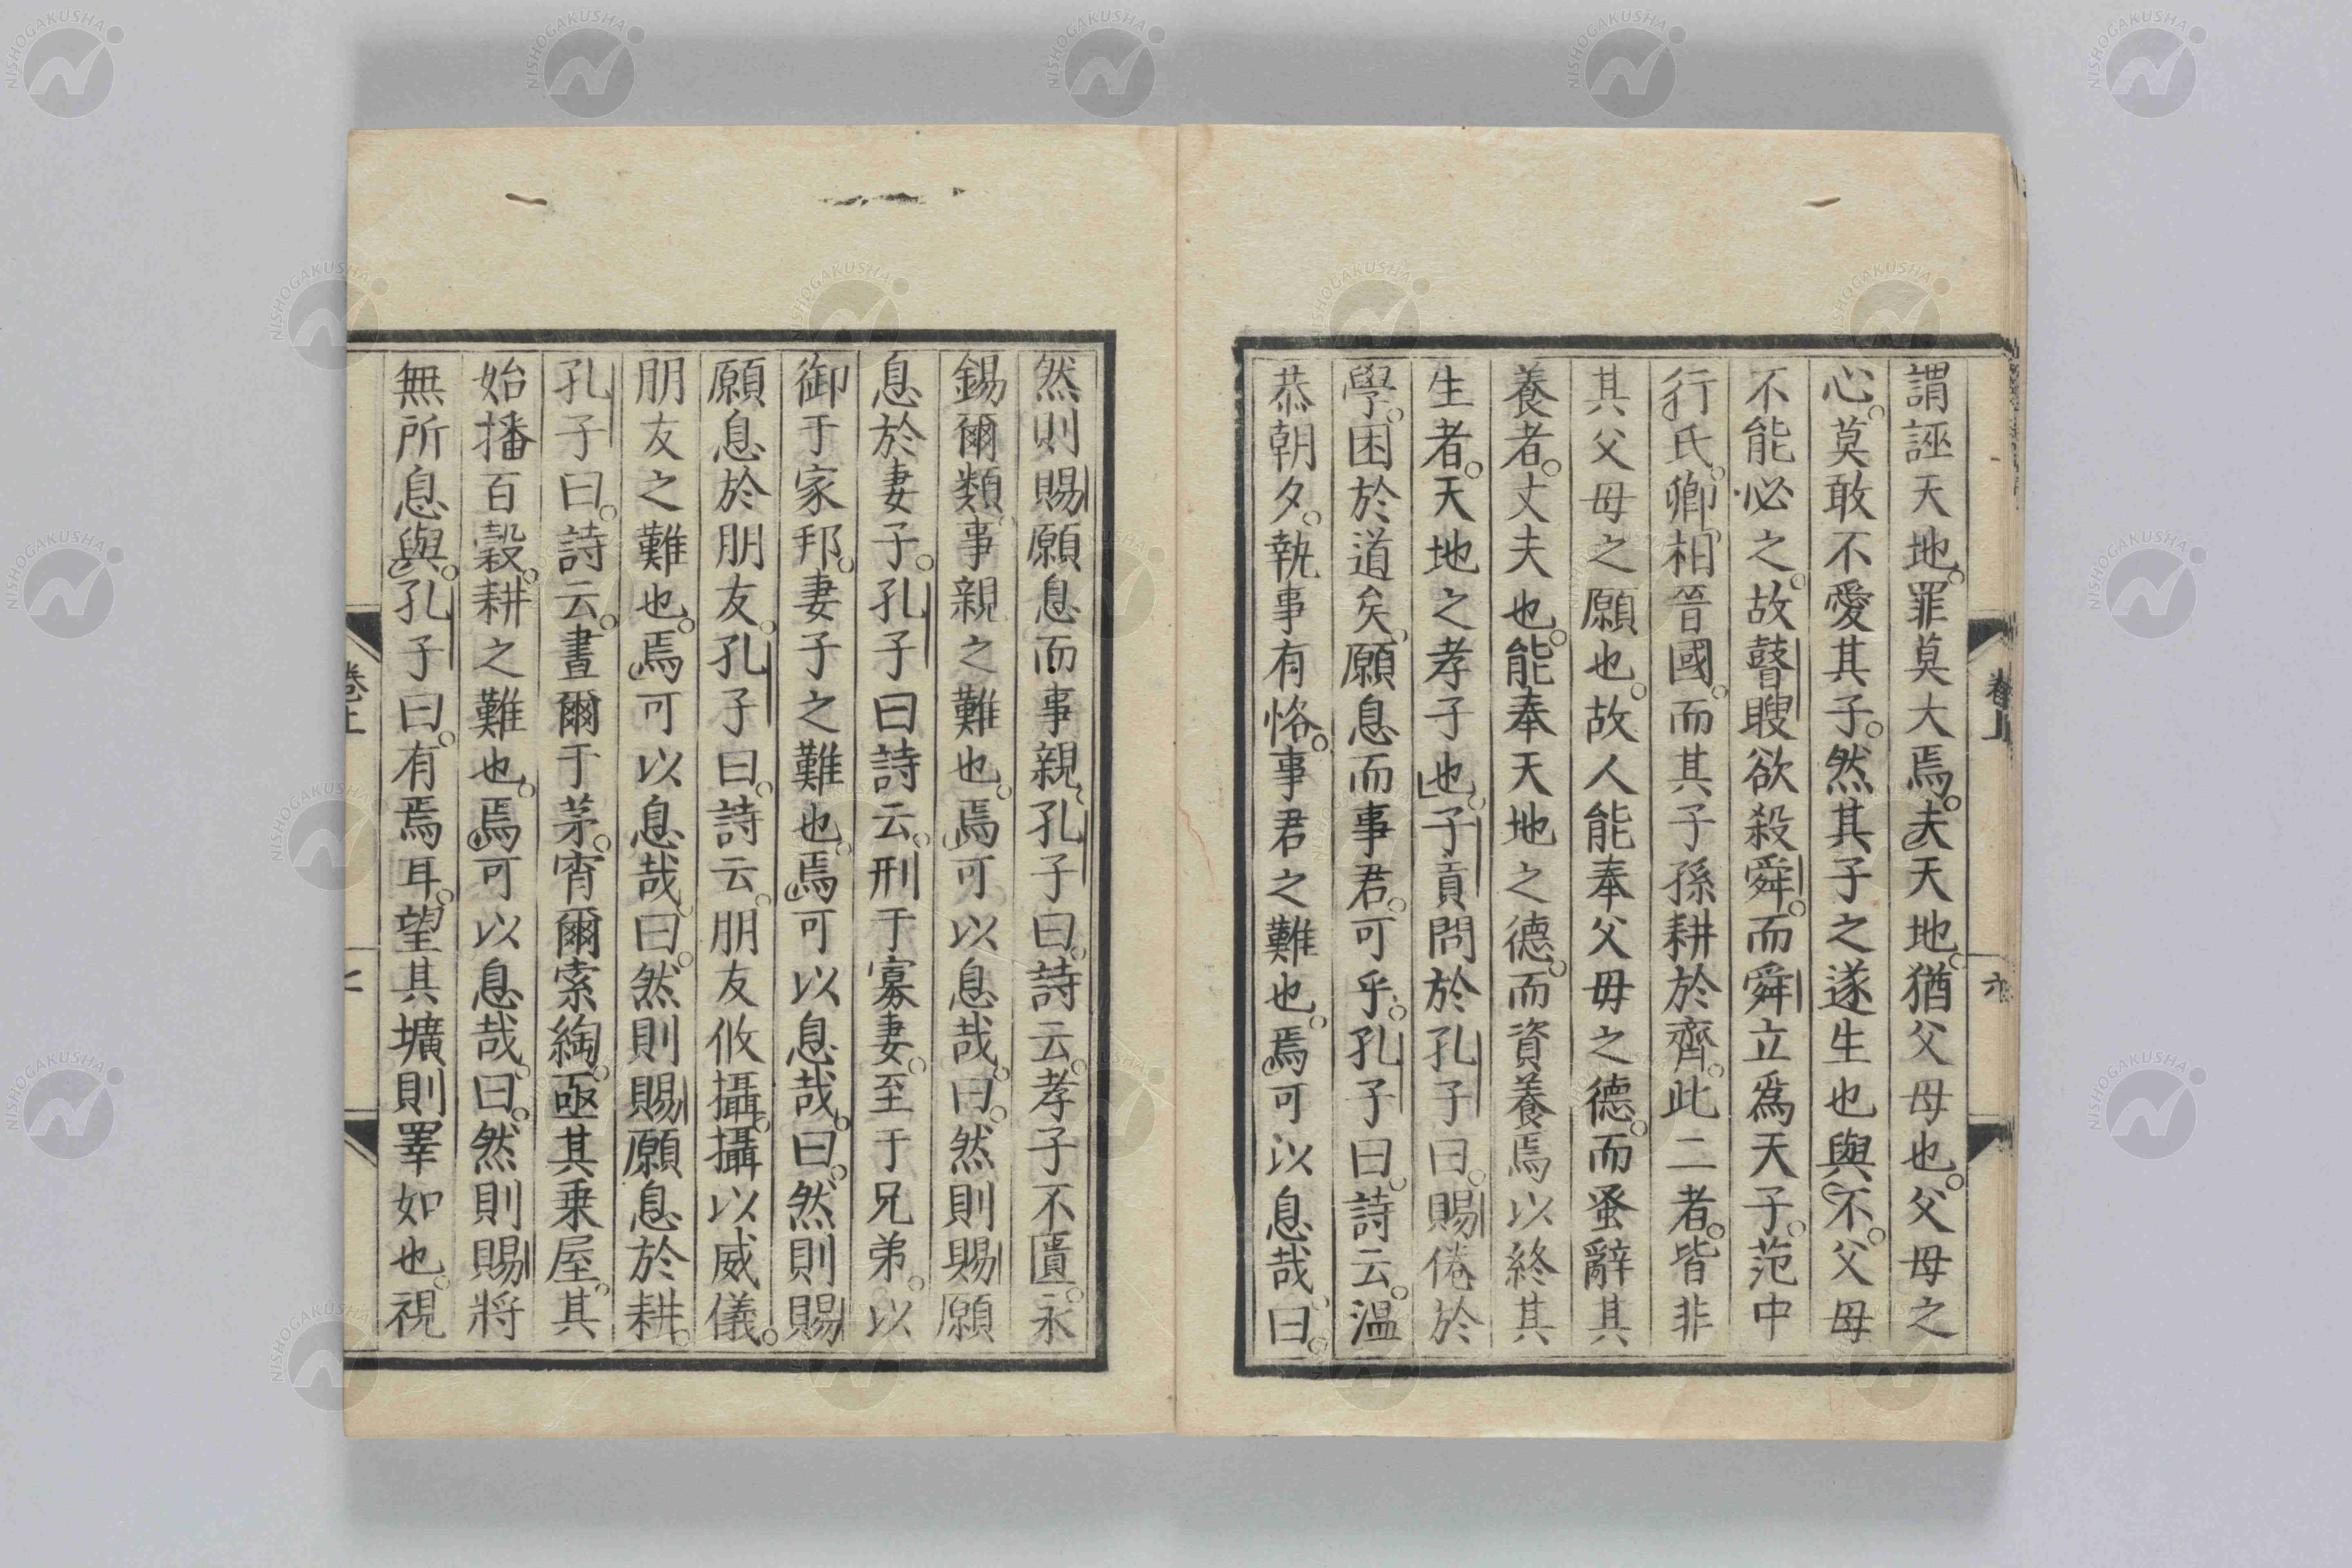 謂誣天地。罪莫大焉。夫天地。猶父母也。父母之
心。莫敢不愛其子。然其子之遂生也與不。父母
不能必之。故瞽瞍欲殺舜。而舜立爲天子。范中
行氏。卿相晉國。而其子孫耕於齊。此二者。皆非
其父母之願也。故人能奉父毋之德。而蚤辭其
養者。丈夫也。能奉天地之德。而資養焉以終其
生者。天地之孝子也。子貢問於孔子曰。賜倦於
學。困於道矣。願息而事君。可乎。孔子曰。詩云。溫
恭朝夕。執事有恪。事君之難也。焉可以息哉。曰。
卷上
六
然則賜願息而事親。孔子曰。詩云。孝子不匱。永
錫爾類。事親之難也。焉可以息哉。曰。然則賜願
息於妻子。孔子曰詩云。刑于寡妻。至于兄弟。以
御于家邦。妻子之難也。焉可以息哉。曰。然則賜
願息於朋友。孔子曰。詩云。朋友攸攝。攝以威儀。
朋友之難也。焉可以息哉。曰。然則賜願息於耕。
孔子曰。詩云。晝爾于茅。宵爾索綯。亟其乗屋。其
始播百穀。耕之難也。焉可以息哉。曰。然則賜將
無所息與。孔子曰。有焉耳。望其壙則睪如也。視
卷上
NISHOGAKUSHA